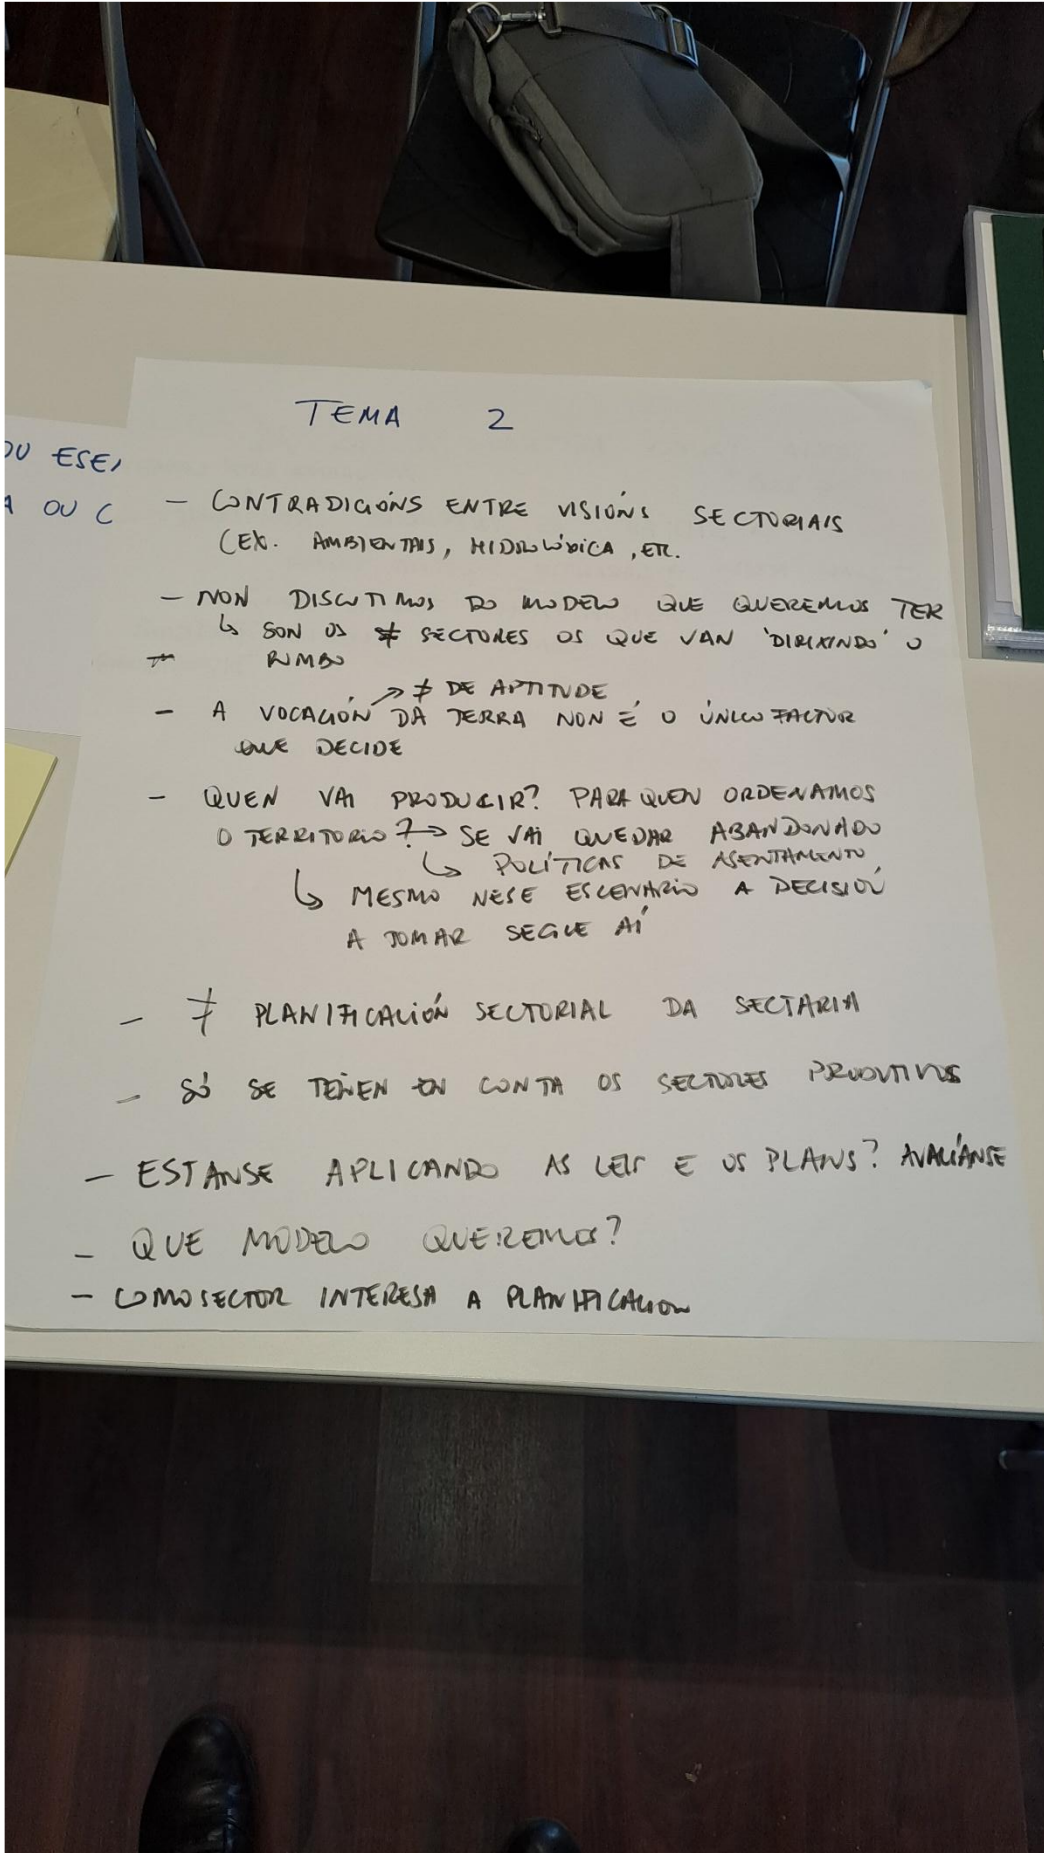 TEMA 2
OU ESE
A OU C
- CONTRADICIÓNS ENTRE VISIÓNS SECTORIAIS
(EX. AMBIENTAIS, HIDROLÓXICA, ETC.
- NON DISCUTIMOS DO MODELO QUE QUEREMOS TER
↳ SON OS ≠ SECTORES OS QUE VAN 'DIRIXINDO' O
RUMBO
→ ≠ DE APTITUDE
- A VOCACIÓN DA TERRA NON É O ÚNICO FACTOR
QUE DECIDE
- QUEN VAI PRODUCIR? PARA QUEN ORDENAMOS
O TERRITORIO? → SE VAI QUEDAR ABANDONADO
↳ POLÍTICAS DE ASENTAMENTO
↳ MESMO NESE ESCENARIO A DECISIÓN
A TOMAR SEGUE AÍ
- ≠ PLANIFICACIÓN SECTORIAL DA SECTARIA
- SÓ SE TEÑEN EN CONTA OS SECTORES PRODUTIVOS
- ESTANSE APLICANDO AS LEIS E OS PLANS? AVALÍANSE
- QUE MODELO QUEREMOS?
- COMO SECTOR INTERESA A PLANIFICACION